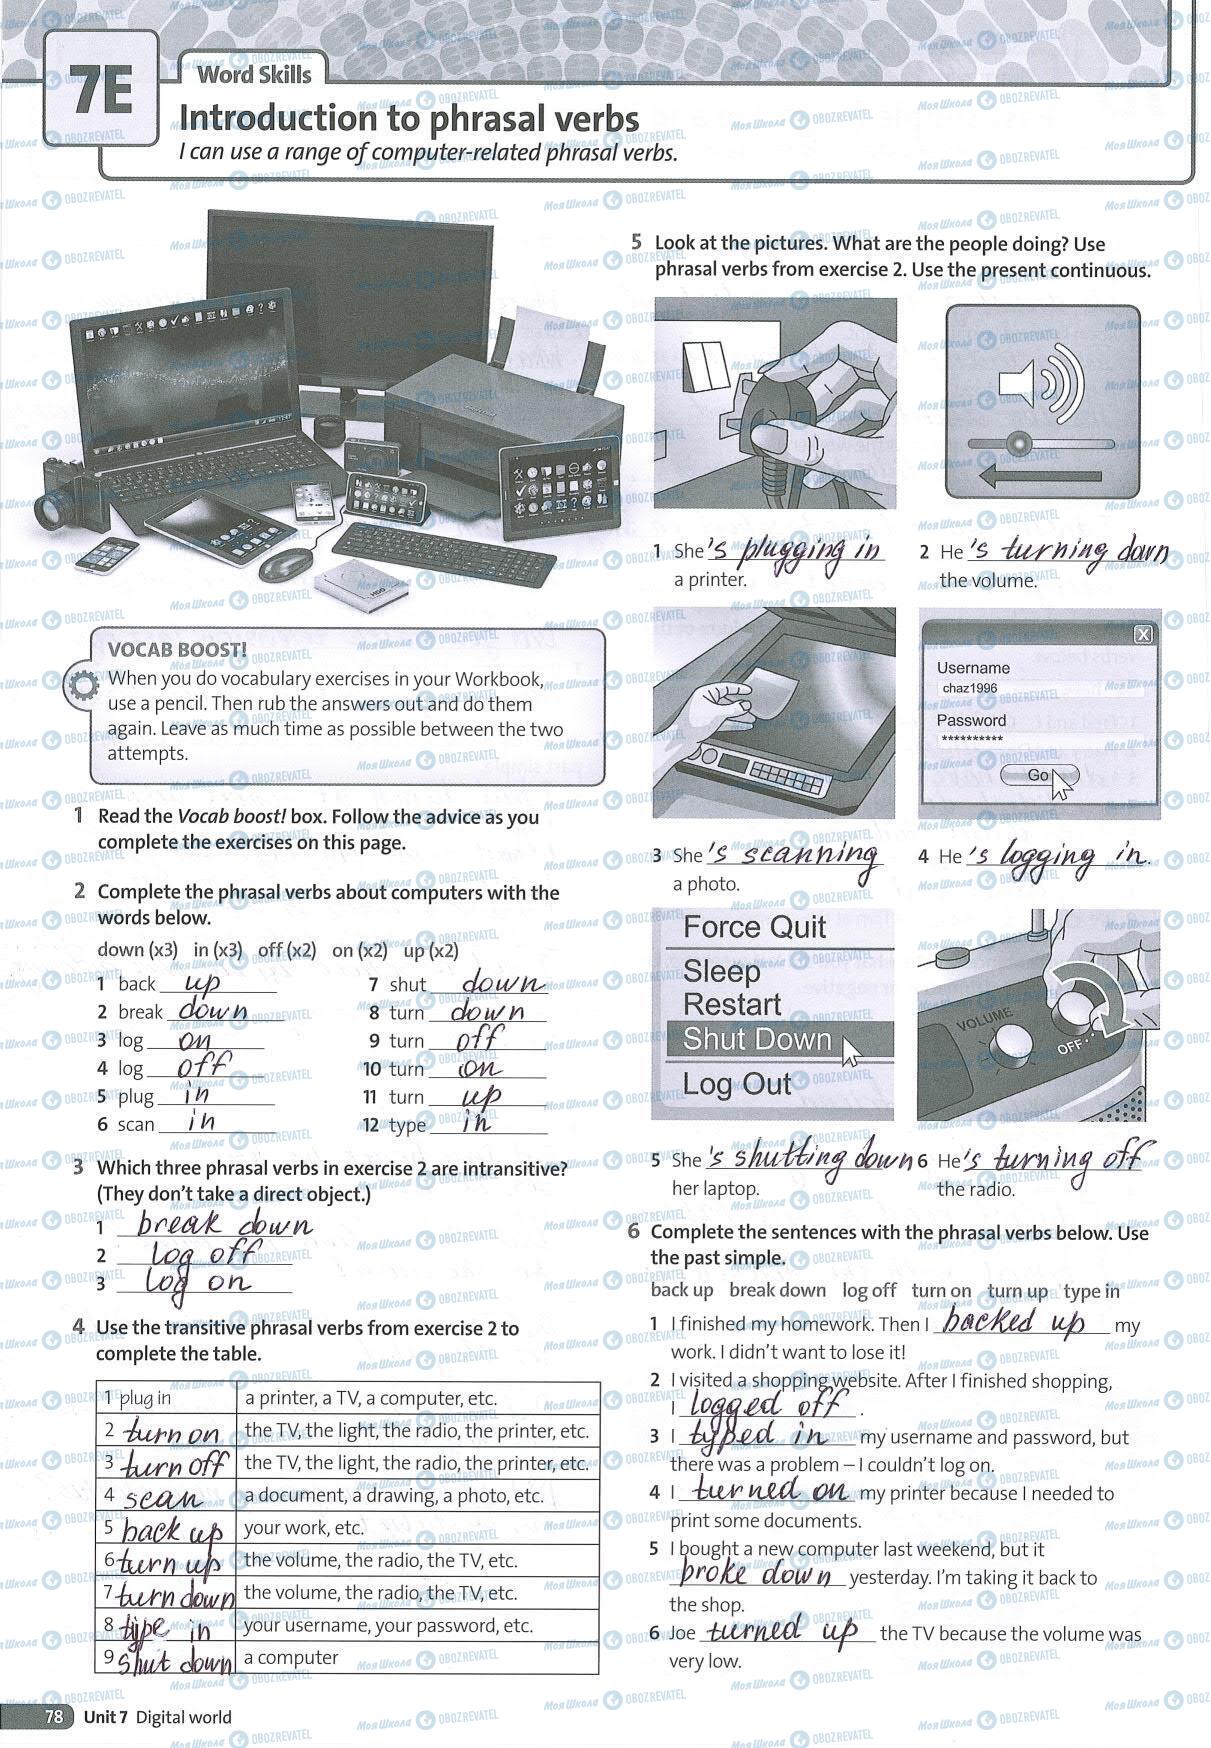 7E
Word Skills
Introduction to phrasal verbs
I can use a range of computer-related phrasal verbs.
VOCAB BOOST!
When you do vocabulary exercises in your Workbook,
use a pencil. Then rub the answers out and do them
again. Leave as much time as possible between the two
attempts.
1 Read the Vocab boost! box. Follow the advice as you
complete the exercises on this page.
2 Complete the phrasal verbs about computers with the
words below.
down (x3) in (x3) off (x2) on (x2) up (x2)
1 back up
2 break down
3 log on
4 log off
5 plug in
6 scan in
7 shut down
8 turn down
9 turn off
10 turn on
11 turn up
12 type in
3 Which three phrasal verbs in exercise 2 are intransitive?
(They don't take a direct object.)
1 break down
2 log off
3 log on
4 Use the transitive phrasal verbs from exercise 2 to
complete the table.
1 plug in a printer, a TV, a computer, etc.
2 turn on the TV, the light, the radio, the printer, etc.
3 turn off the TV, the light, the radio, the printer, etc.
4 scan a document, a drawing, a photo, etc.
5 back up your work, etc.
6 turn up the volume, the radio, the TV, etc.
7 turn down the volume, the radio, the TV, etc.
8 type in your username, your password, etc.
9 shut down a computer
5 Look at the pictures. What are the people doing? Use
phrasal verbs from exercise 2. Use the present continuous.
1 She 's plugging in
a printer.
2 He 's turning down
the volume.
Username
chaz1996
Password
**********
Go
X
3 She 's scanning
a photo.
4 He 's logging in.
Force Quit
Sleep
Restart
Shut Down
Log Out
VOLUME
OFF
5 She 's shutting down
her laptop.
6 He 's turning off
the radio.
6 Complete the sentences with the phrasal verbs below. Use
the past simple.
back up break down log off turn on turn up type in
1 I finished my homework. Then I backed up my
work. I didn't want to lose it!
2 I visited a shopping website. After I finished shopping,
I logged off.
3 I typed in my username and password, but
there was a problem – I couldn't log on.
4 I turned on my printer because I needed to
print some documents.
5 I bought a new computer last weekend, but it
broke down yesterday. I'm taking it back to
the shop.
6 Joe turned up the TV because the volume was
very low.
78 Unit 7 Digital world
Моя Школа OBOZREVATEL